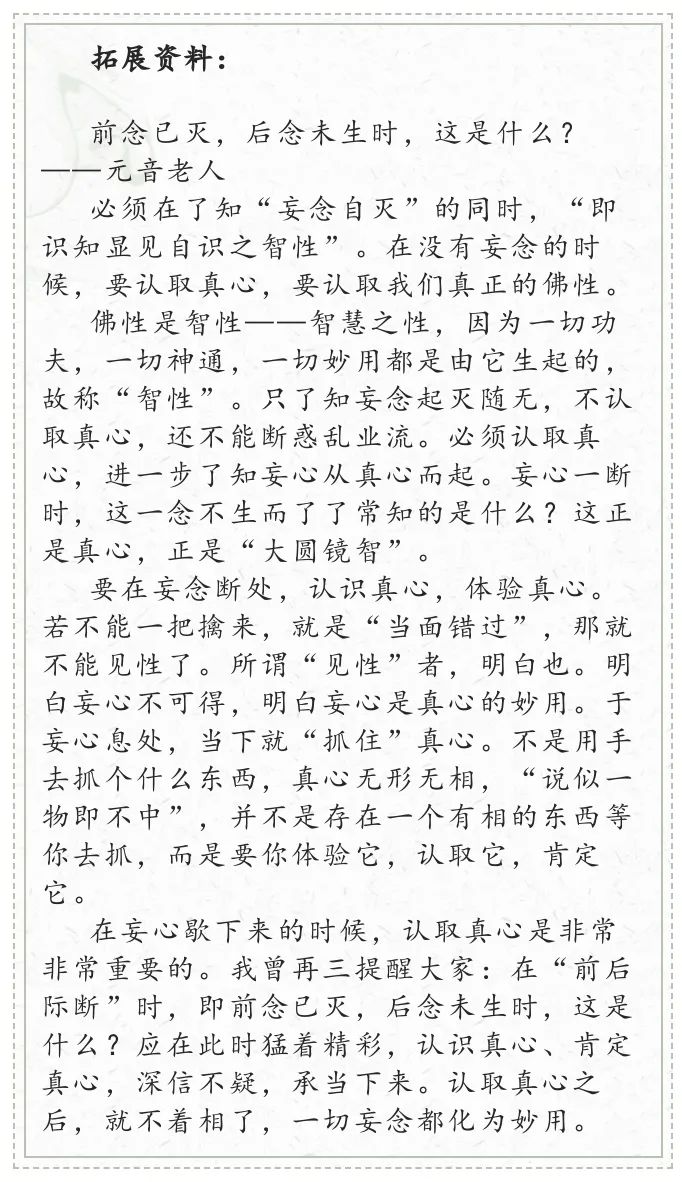 拓展资料：
前念已灭，后念未生时，这是什么？
——元音老人
必须在了知“妄念自灭”的同时，“即
识知显见自识之智性”。在没有妄念的时
候，要认取真心，要认取我们真正的佛性。
佛性是智性——智慧之性，因为一切功
夫，一切神通，一切妙用都是由它生起的，
故称“智性”。只了知妄念起灭随无，不认
取真心，还不能断惑乱业流。必须认取真
心，进一步了知妄心从真心而起。妄心一断
时，这一念不生而了了常知的是什么？这正
是真心，正是“大圆镜智”。
要在妄念断处，认识真心，体验真心。
若不能一把擒来，就是“当面错过”，那就
不能见性了。所谓“见性”者，明白也。明
白妄心不可得，明白妄心是真心的妙用。于
妄心息处，当下就“抓住”真心。不是用手
去抓个什么东西，真心无形无相，“说似一
物即不中”，并不是存在一个有相的东西等
你去抓，而是要你体验它，认取它，肯定
它。
在妄心歇下来的时候，认取真心是非常
非常重要的。我曾再三提醒大家：在“前后
际断”时，即前念已灭，后念未生时，这是
什么？应在此时猛着精彩，认识真心、肯定
真心，深信不疑，承当下来。认取真心之
后，就不着相了，一切妄念都化为妙用。